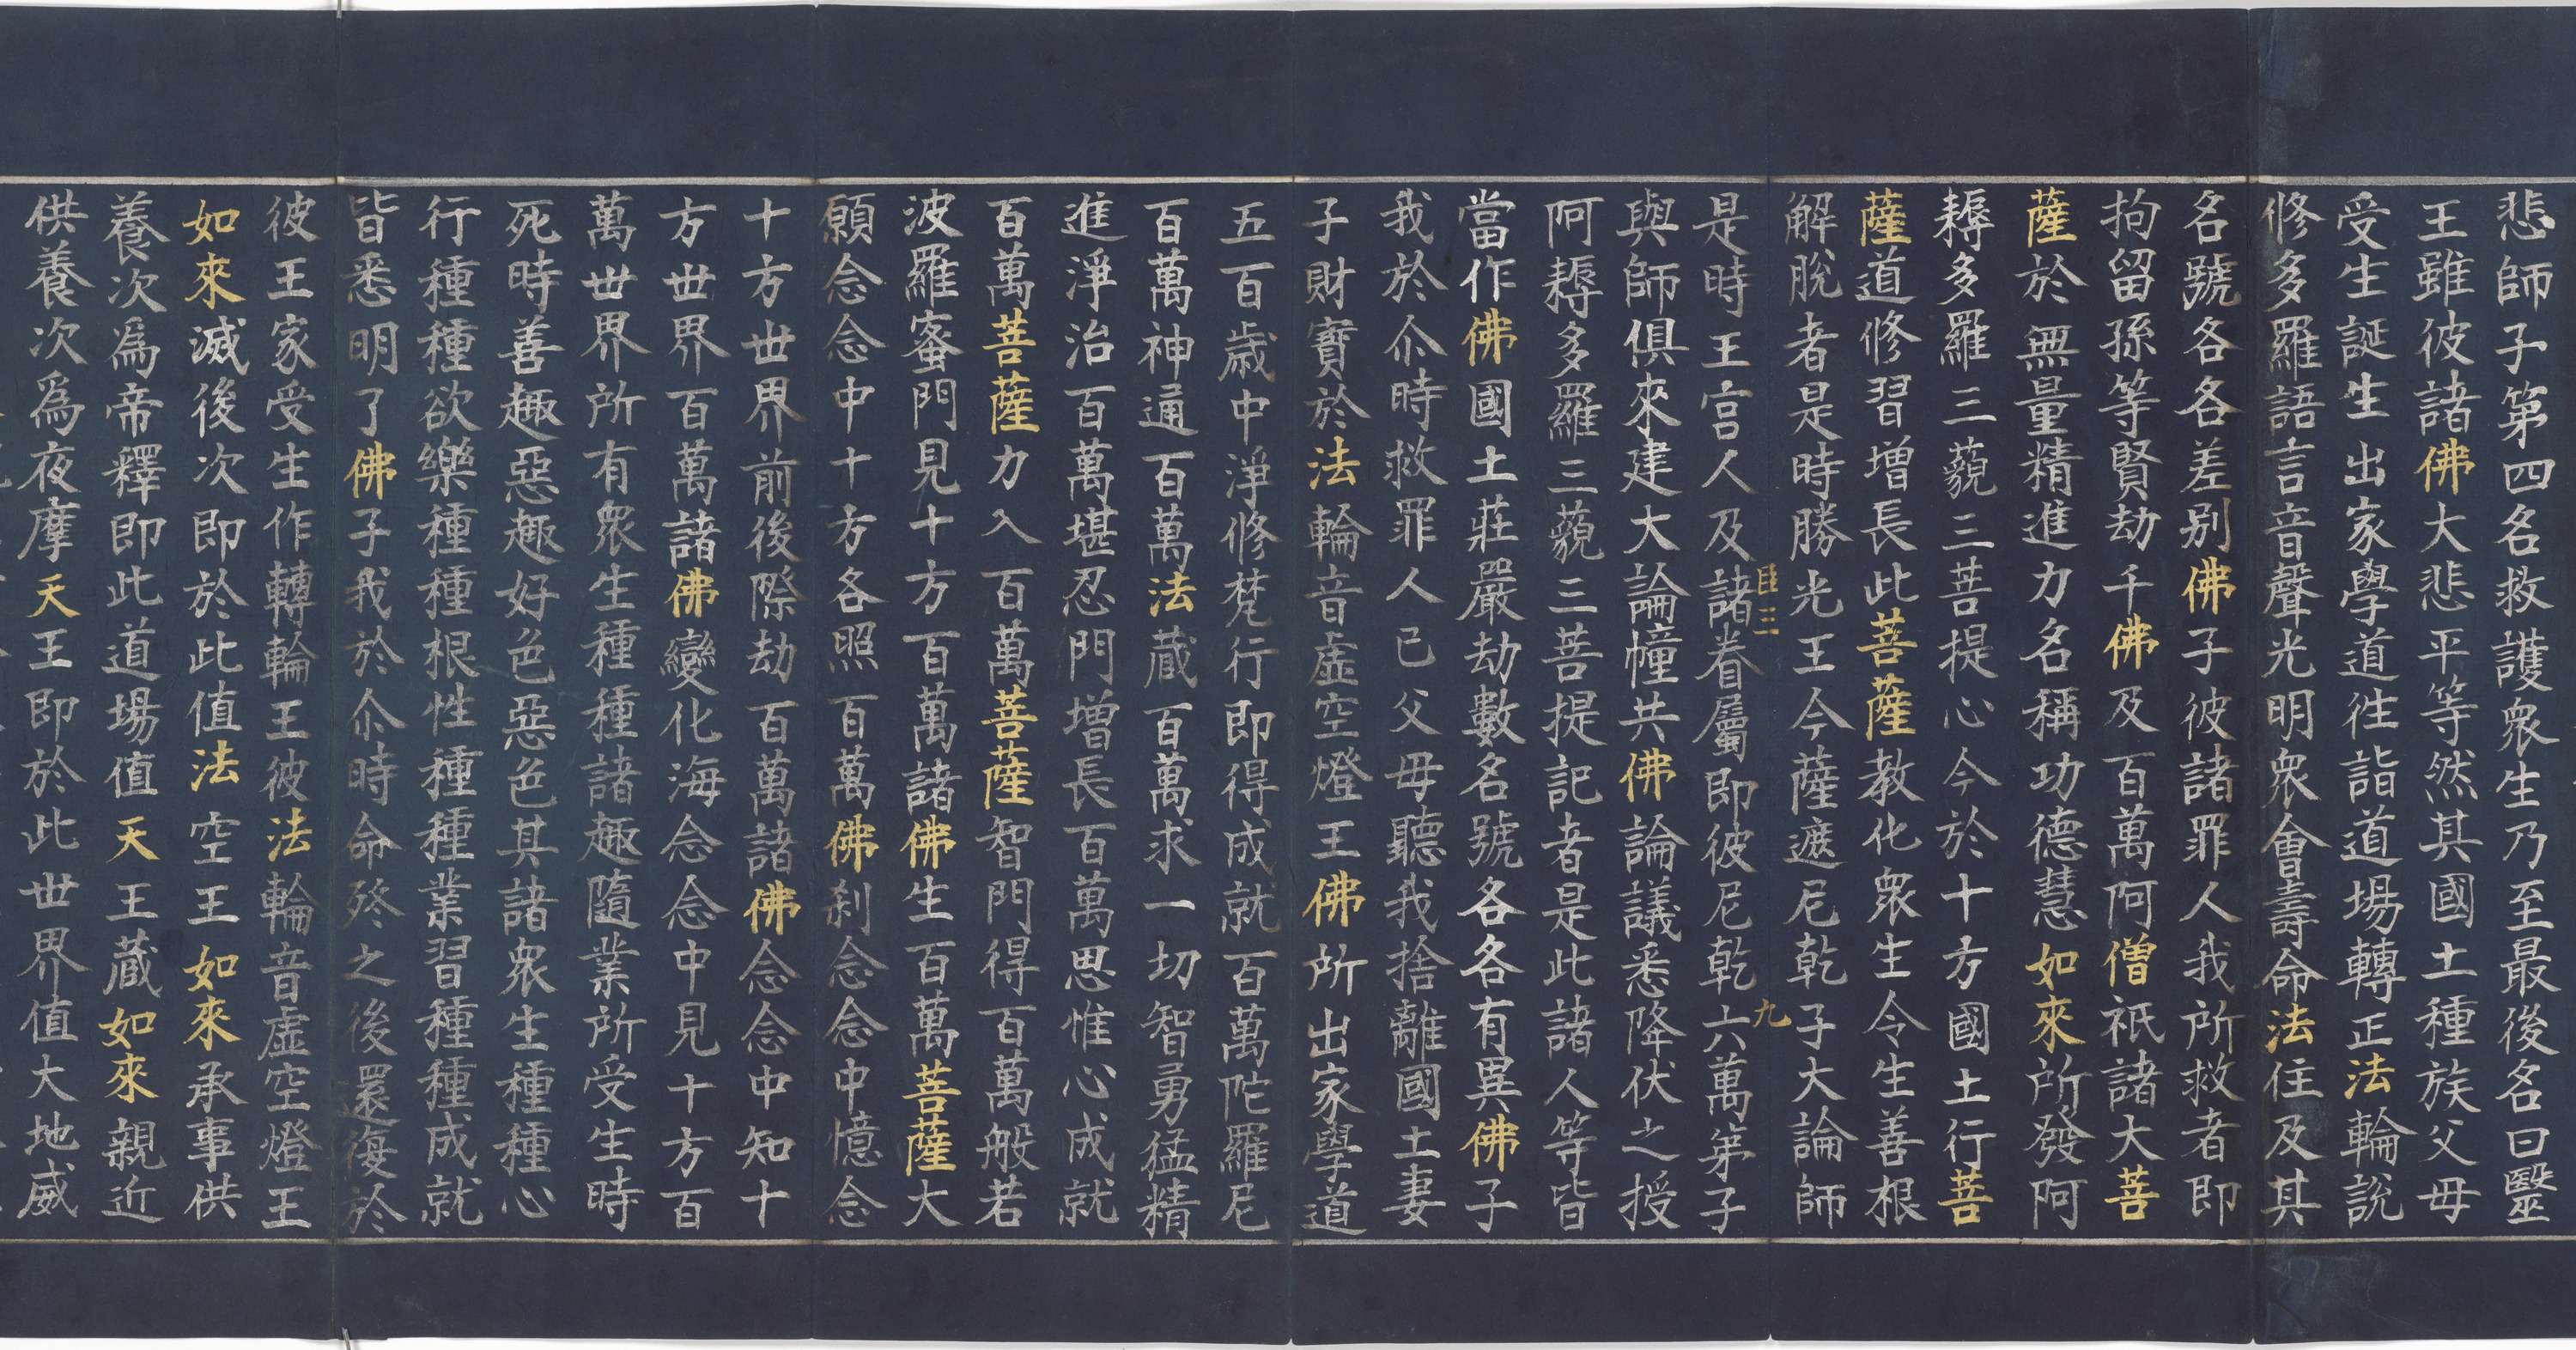 悲師子第四名救護衆生乃至最後名曰毉
王雖彼諸佛大悲平等然其國土種族父母
受生誕生出家學道徃詣道場轉正法輪説
修多羅語言音聲光明衆會壽命法住及其
名號各各差别佛子彼諸罪人我所救者即
拘留孫等賢劫千佛及百萬阿僧祇諸大菩
薩於無量精進力名稱功德慧如來所發阿
耨多羅三藐三菩提心今於十方國土行菩
薩道修習增長此菩薩教化衆生令生善根
解脱者是時勝光王今薩遮尼乾子大論師
臣三 九
是時王宫人及諸眷屬即彼尼乾六萬弟子
與師俱來建大論幢共佛論議悉降伏之授
阿耨多羅三藐三菩提記者是此諸人等皆
當作佛國土莊嚴劫數名號各各有異佛子
我於尒時救罪人已父母聽我捨離國土妻
子財寳於法輪音虚空燈王佛所出家學道
五百歲中淨修梵行即得成就百萬陀羅尼
百萬神通百萬法藏百萬求一切智勇猛精
進淨治百萬堪忍門增長百萬思惟心成就
百萬菩薩力入百萬菩薩智門得百萬般若
波羅蜜門見十方百萬諸佛生百萬菩薩大
願念念中十方各照百萬佛刹念念中憶念
十方世界前後際劫百萬諸佛念念中知十
方世界百萬諸佛變化海念念中見十方百
萬世界所有衆生種種諸趣隨業所受生時
死時善趣惡趣好色惡色其諸衆生種種心
行種種欲樂種種根性種種業習種種成就
皆悉明了佛子我於尒時命終之後還復於
彼王家受生作轉輪王彼法輪音虚空燈王
如來滅後次即於此值法空王如來承事供
養次為帝釋即此道場值天王藏如來親近
供養次為夜摩天王即於此世界值大地威